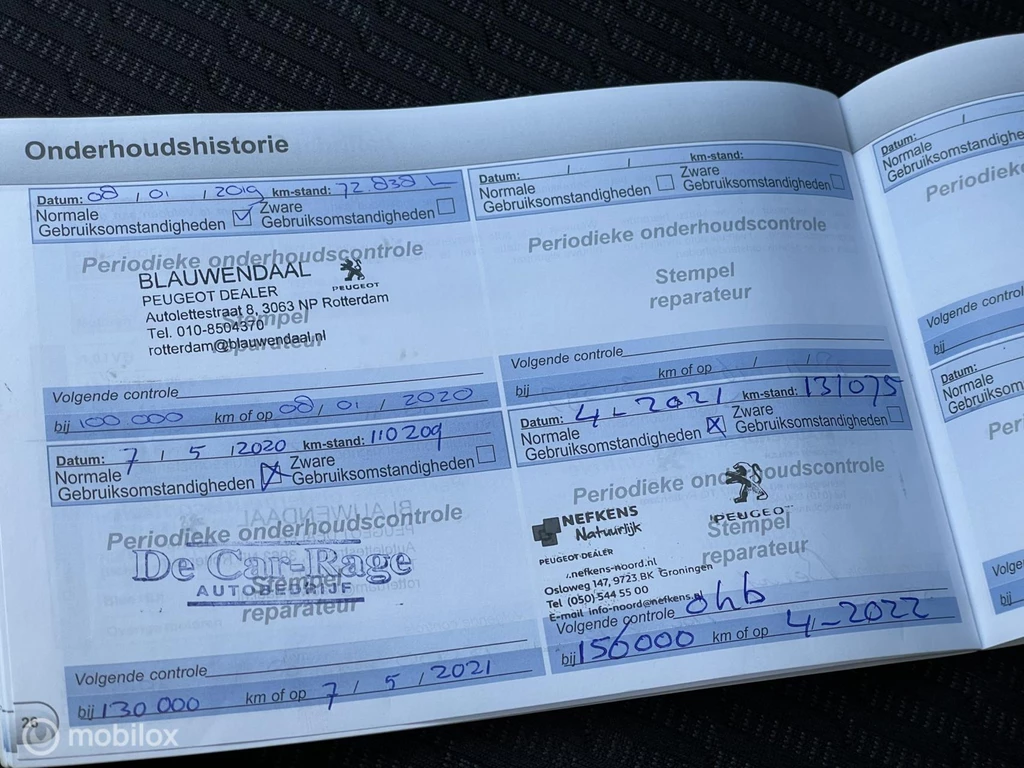 Onderhoudshistorie
Datum: 08 / 01 / 2019 km-stand: 72.838 L
Normale Gebruiksomstandigheden
Zware Gebruiksomstandigheden
Periodieke onderhoudscontrole
BLAUWENDAAL
PEUGEOT
PEUGEOT DEALER
Autolettestraat 8, 3063 NP Rotterdam
Tel. 010-8504370
Stempel
rotterdam@blauwendaal.nl
reparateur
Volgende controle
bij 100 000 km of op 08 / 01 / 2020
Datum: 7 / 5 / 2020 km-stand: 110209
Normale Gebruiksomstandigheden
Zware Gebruiksomstandigheden
Periodieke onderhoudscontrole
De Car-Rage
Stempel
AUTOBEDRIJF
reparateur
Volgende controle
bij 130 000 km of op 7 / 5 / 2021
26
Datum: / / km-stand:
Normale Gebruiksomstandigheden
Zware Gebruiksomstandigheden
Periodieke onderhoudscontrole
Stempel
reparateur
Volgende controle
bij km of op / /
Datum: 4-2021 km-stand: 131075
Normale Gebruiksomstandigheden
Zware Gebruiksomstandigheden
Periodieke onderhoudscontrole
NEFKENS
Natuurlijk
PEUGEOT
Stempel
PEUGEOT DEALER
reparateur
.nefkens-noord.nl
Osloweg 147, 9723 BK Groningen
Tel (050) 544 55 00
E-mail info-noord@nefkens.
Volgende controle ohb
bij 156000 km of op 4-2022
Datum: /
Normale
Gebruiksomstandighede
Periodieke
Volgende control
bij
Datum:
Normale
Gebruiksomst
Per
Volge
bij
mobilox